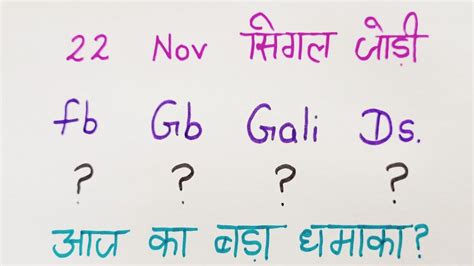 22 Nov सिगल जोड़ी
fb Gb Gali Ds.
? ? ? ?
आज का बड़ा धमाका?